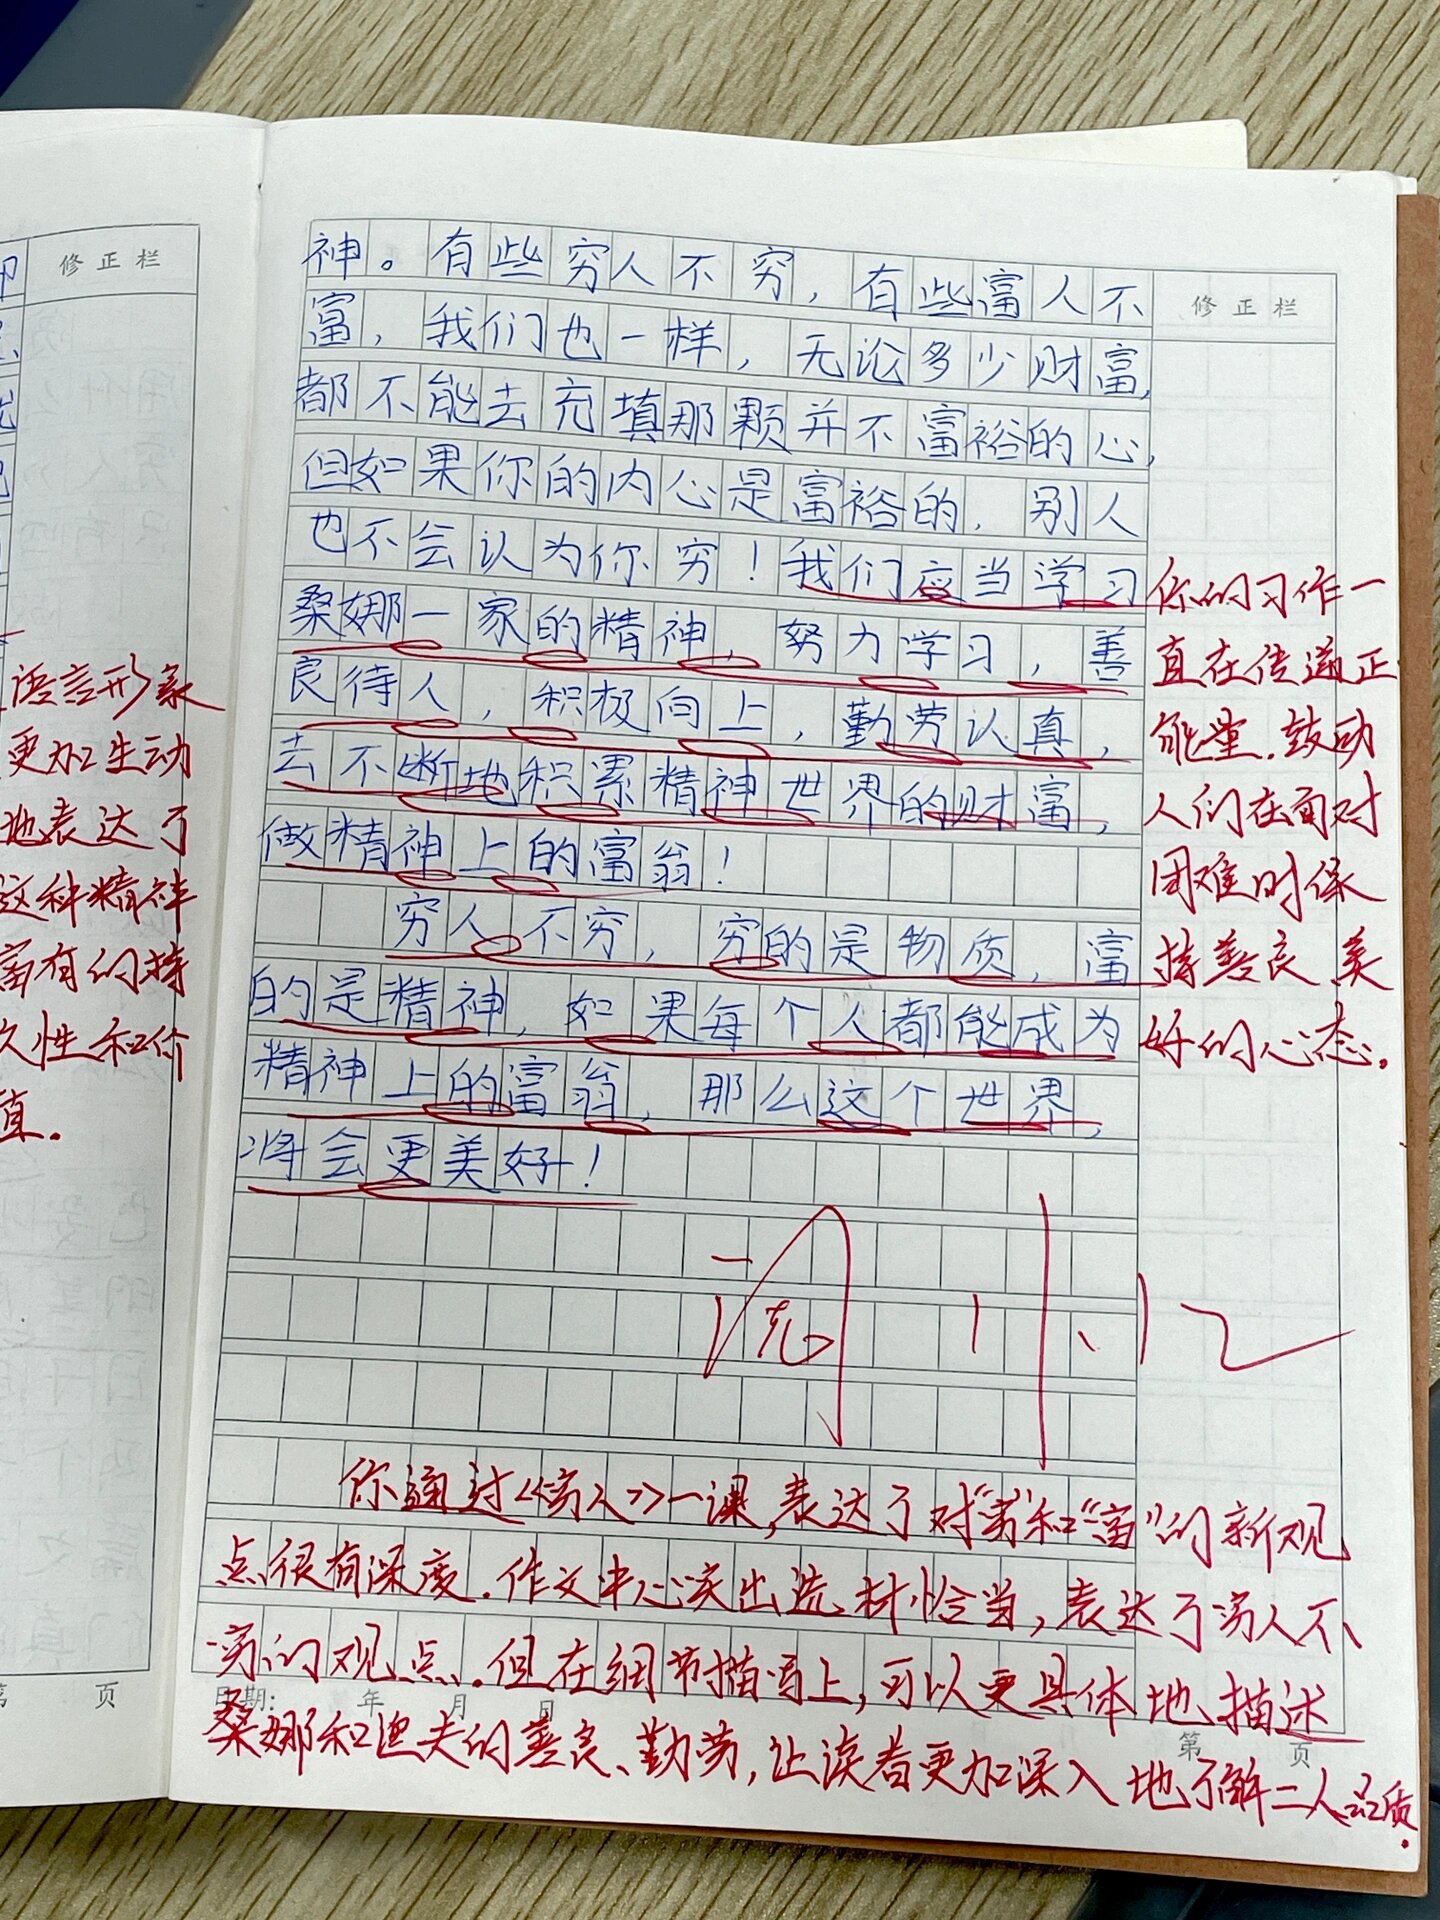 修正栏
语言形象
更加生动
地表达了
这种精神
富有的持
久性和价
值.
页
神。有些穷人不穷，有些富人不
富，我们也一样，无论多少财富，
都不能去充填那颗并不富裕的心，
但如果你的内心是富裕的，别人
也不会认为你穷！我们应当学习
桑娜一家的精神，努力学习，善
良待人，积极向上，勤劳认真，
去不断地积累精神世界的财富，
做精神上的富翁！
穷人不穷，穷的是物质，富
的是精神，如果每个人都能成为
精神上的富翁，那么这个世界，
将会更美好！
修正栏
你的习作一
直在传递正
能量.鼓动
人们在面对
困难时保
持善良美
好的心态.
你通过《穷人》一课,表达了对"穷"和"富"的新观
点很有深度.作文中心突出选材恰当,表达了穷人不
穷的观点.但在细节描写上,可以更具体地描述
桑娜和渔夫的善良、勤劳,让读者更加深入地了解二人品质.
日期: 年 月 日
第 页